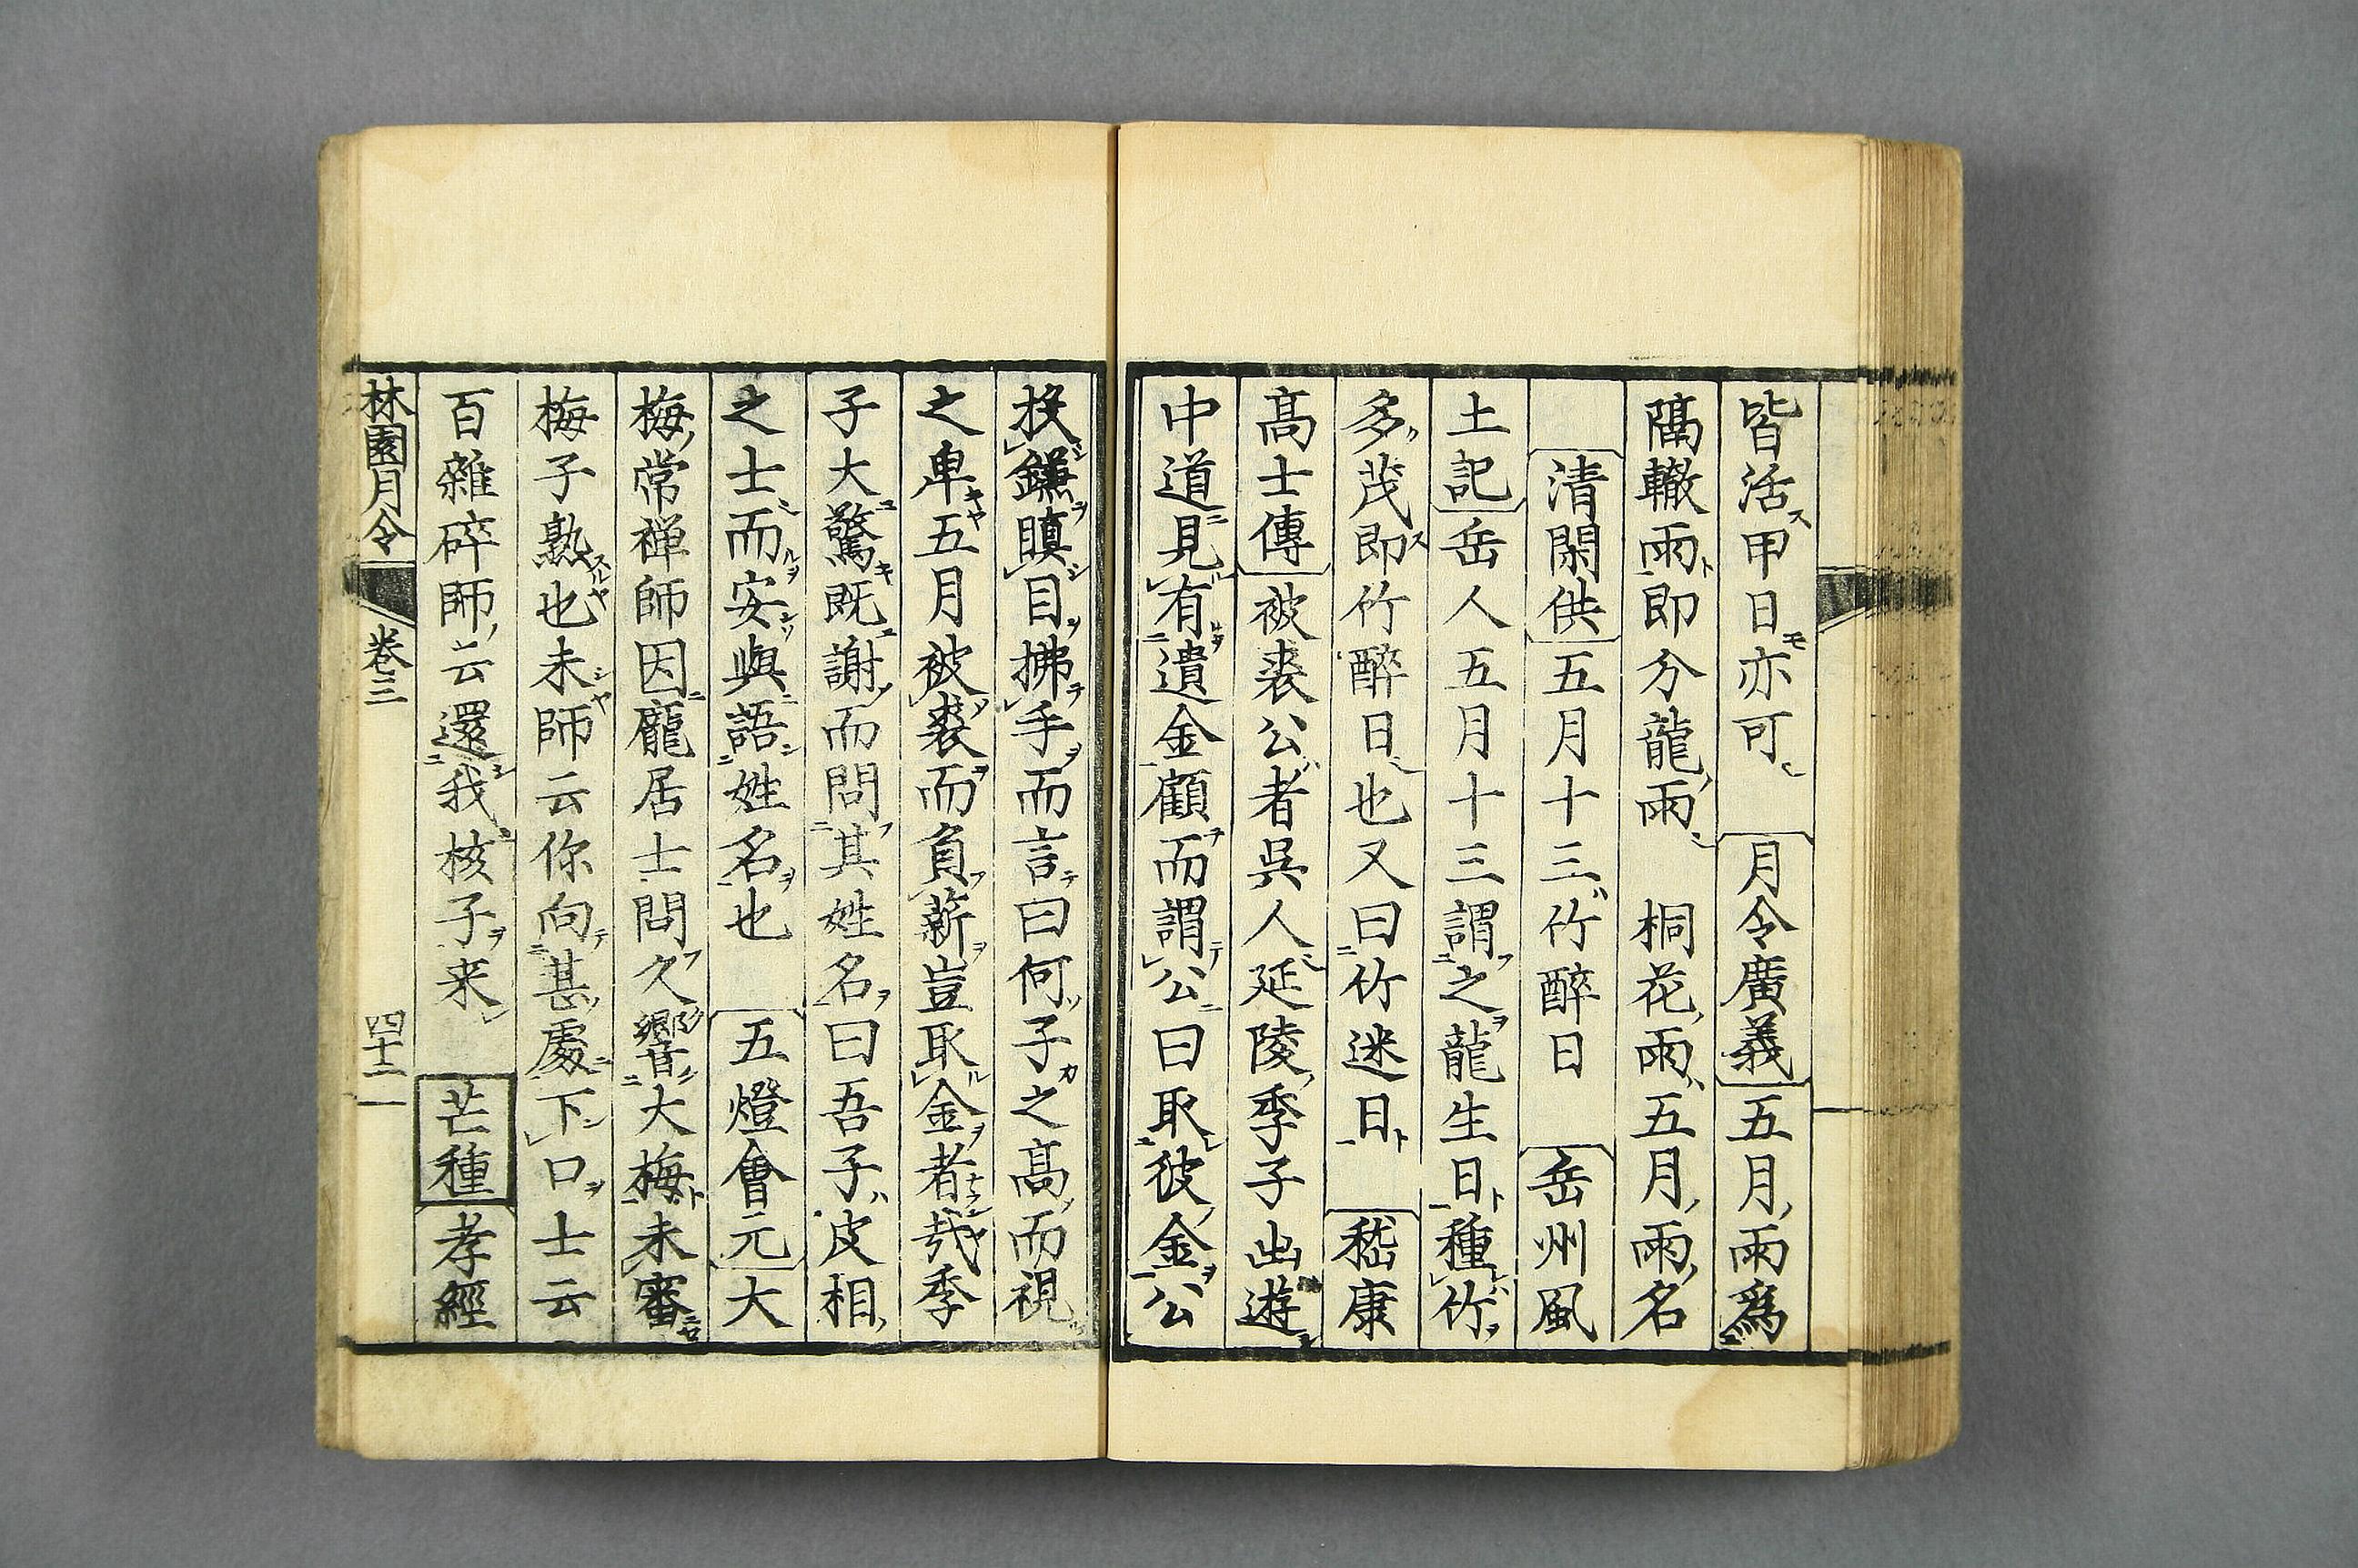 皆活甲日亦可 月令廣義 五月雨爲
隔轍雨即分龍雨 桐花雨五月雨名
清閑供 五月十三竹醉日 岳州風
土記 岳人五月十三謂之龍生日種竹
多茂即竹醉日也又曰竹迷日 嵇康
高士傳 被裘公者吳人延陵季子出遊
中道見有遺金顧而謂公曰取彼金公
投鎌瞋目拂手而言曰何子之高而視
之卑五月被裘而負薪豈取金者哉季
子大驚既謝而問其姓名曰吾子皮相
之士而安與語姓名也 五燈會元 大
梅常禅師因龐居士問久響大梅未審
梅子熟也未師云你向甚處下口士云
百雜碎師云還我核子来 芒種 孝經
林園月令 卷三 四十二